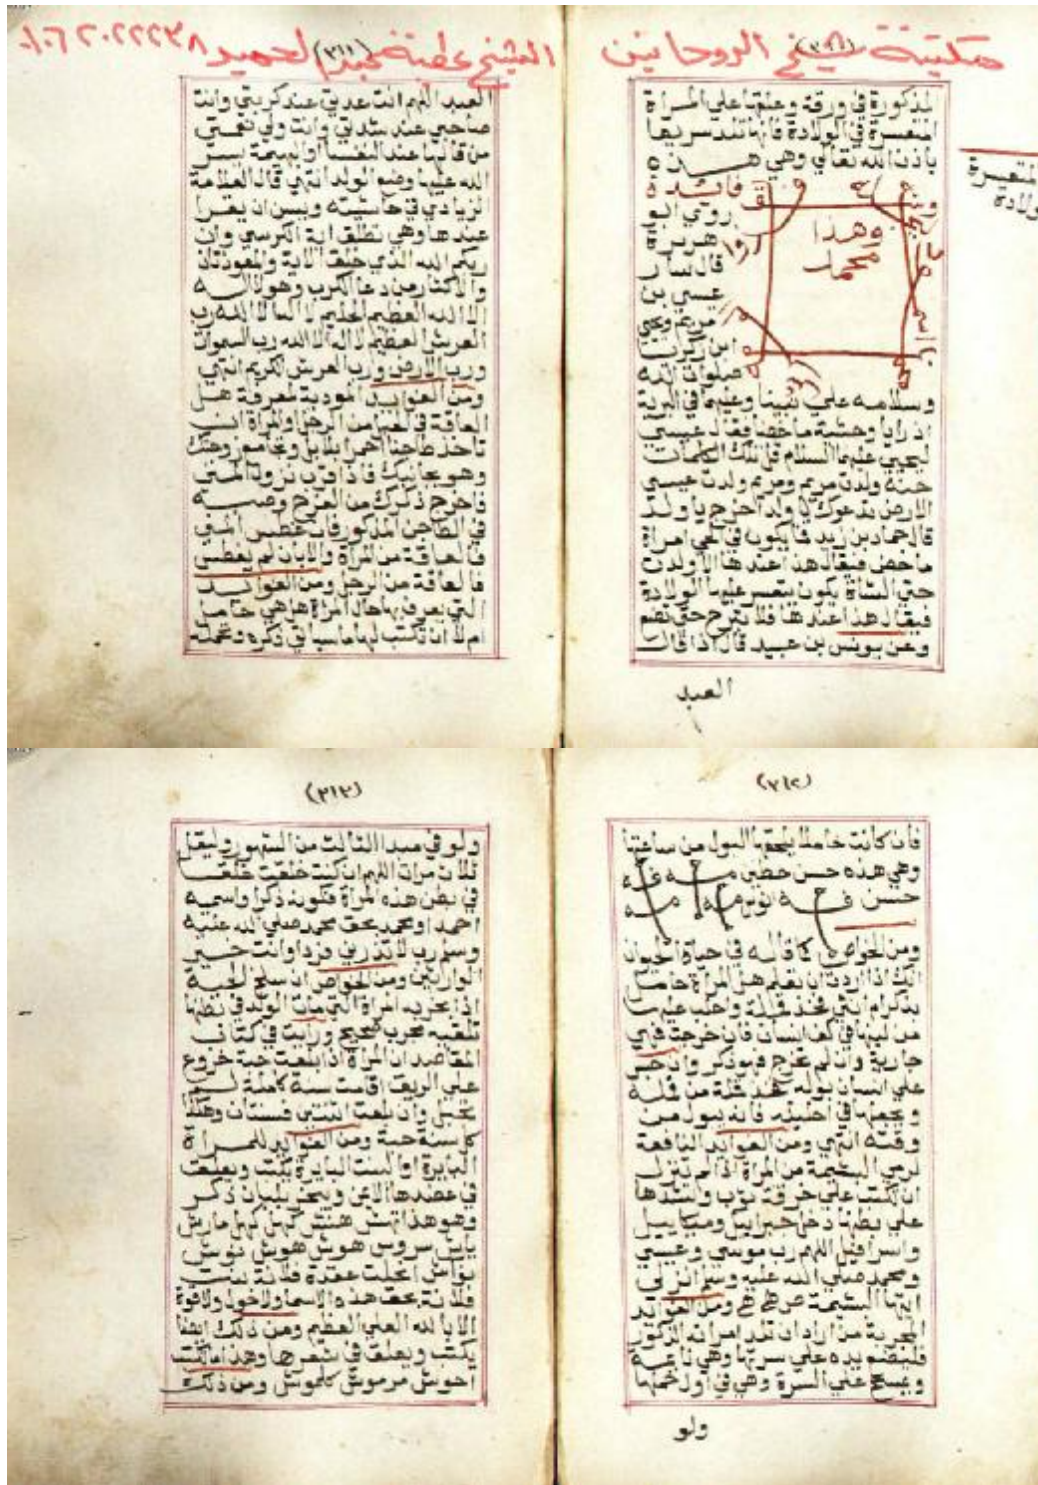 مكتبة شيخ الروحانين
الشيخ عطية عبد الحميد ٠١٠٦٢٠٢٢٢٣٨
(٣١١)
المذكورة في ورقة وعلقها على المراة
المتعسرة في الولادة فانها تلد سريعا
باذن الله تعالي وهي هذه
المتعسرة
ولادة
وهذا
فائدة
روي ابو
هريرة
قال بينما
عيسي بن
مريم ويحي
ابن زكريا
صلوات الله
وسلامه علي نبينا وعليهما في البرية
اذ رايا وحشية ماخضا فقال عيسي
ليحيي عليهما السلام قل تلك الكلمات
حنة ولدت مريم ومريم ولدت عيسي
الارض تدعوك يا ولد اخرج يا ولد
قال حماد بن زيد فما يكون في الحي امراة
ماخض فيقال هذا عندها الا ولدت
حتي الشاة يكون يتعسر عليها الولادة
فيقال هذا عندها فلا تبرح حتي تضع
وعن يونس بن عبيد قال اذا قال
العبد
العبد اللهم انت عدتي عند كربتي وانت
صاحبي عند شدتي وانت ولي نعمتي
من قالها عند النفسا او البهيمة يسر
الله عليها وضع الولد انتهي قال العلامة
الزيادي في حاشيته ويسن ان يقرا
عندها وهي تطلق اية الكرسي وان
ربكم الله الذي خلق الاية والمعوذتان
والاكثار من دعا الكرب وهو لا اله
الا الله العظيم الحليم لا اله الا الله رب
العرش العظيم لا اله الا الله رب السموات
ورب الارض ورب العرش الكريم انتهي
ومن الفوايد المودية لمعرفة هل
العاقة في الحبل من الرجل والمراة ان
تاخذ طاجنا احمر وتجامع زوجتك
وهو بجانبك فاذا قرب نزول المني
فاخرج ذكرك من الفرج وصبه
في الطاجن المذكور فان غطس المني
فالعاقة من المراة والا بان لم يغطس
فالعاقة من الرجل ومن الفوايد
التي يعرف بها حال المراة هل هي حامل
ام لا ان تكتب لها ما سياتي ذكره وتحمله
(٣١٢)
فان كانت حاملا يلحقها البول من ساعتها
وهي هذه حسن حطي
حسن
ومن الخواص كما قاله في حياة الحيوان
انك اذا اردت ان تعلم هل المراة حامل
بذكر ام انثي فخذ قملة واحلب عليها
من لبنها في كف انسان فان خرجت فهي
جارية وان لم تخرج فهو ذكر وان حبس
علي انسان بوله فخذ قملة من قمله
ويجعلها في احليله فانه يبول من
وقته انتهي ومن الفوايد النافعة
لرمي البشيمة من المراة اذا لم تنزل
ان تكتب علي خرقة ثوب وتشدها
علي بطنها دخل جبراييل وميكاييل
واسرافيل اللهم رب موسي وعيسي
ومحمد صلي الله عليه وسلم انزلي
ايتها البشيمة ومن الفوايد
المجربة من اراد ان تلد امراته الذكور
فليضع يده علي سرتها وهي ناعسة
ويمسح علي السرة وهي في اول حملها
ولو
(٣١٣)
ولو في مبدا الثالث من الشهور وليقل
ثلاث مرات اللهم ان كنت خلقت خلقا
في بطن هذه المراة فكونه ذكرا واسميه
احمد او محمد بحق محمد صلي الله عليه
وسلم رب لا تذرني فردا وانت خير
الوارثين ومن الخواص ان سلخ الحية
اذا بخر به المراة التي مات الولد في بطنها
تلقيه مجرب صحيح ورايت في كتاب
المقاصد ان المراة اذا بلعت حبة خروع
علي الريق اقامت سنة كاملة لم
تحبل وان بلعت اثنتين فسنتان وهكذا
كل سنة حبة ومن الفوايد للمراة
البايرة او البنت البايرة يكتب ويعلق
في عضدها الايمن ويبخر بلبان ذكر
وهو هذا نهش هنش كهل كهل مارش
يارش سروس هوش هوش نوش
بواش انحلت عقدة فلانة بنت
فلانة بحق هذه الاسما ولا حول ولا قوة
الا بالله العلي العظيم ومن ذلك ايضا
يكتب ويعلق في شعرها وهذا ما تكتب
احوش مرموش كلموش ومن ذلك